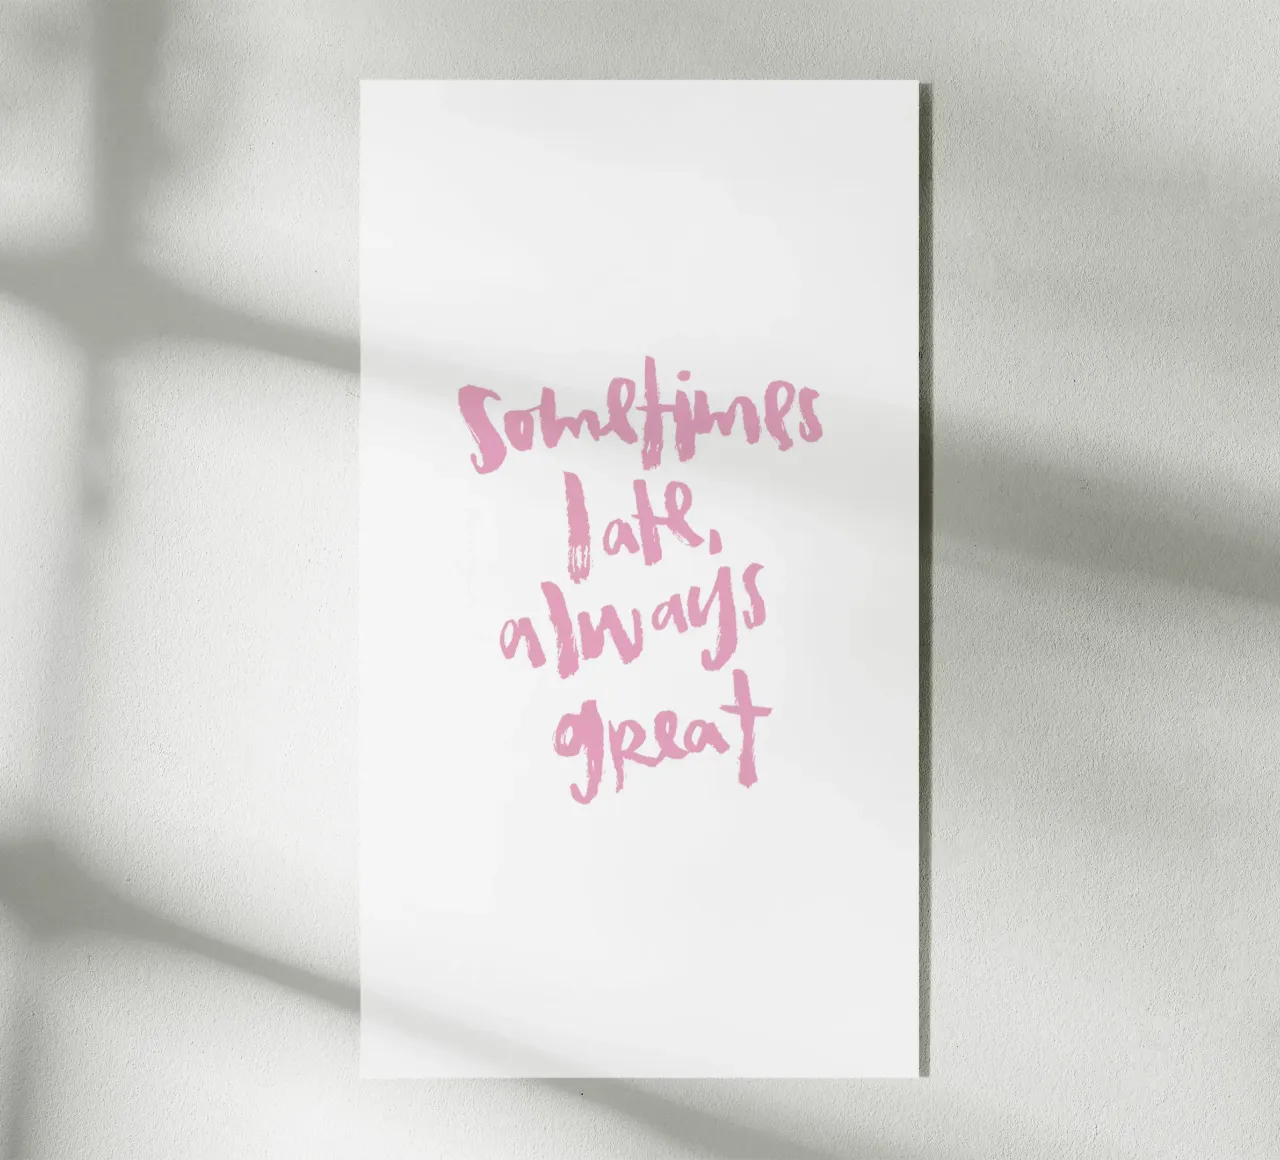 sometimes
late,
always
great